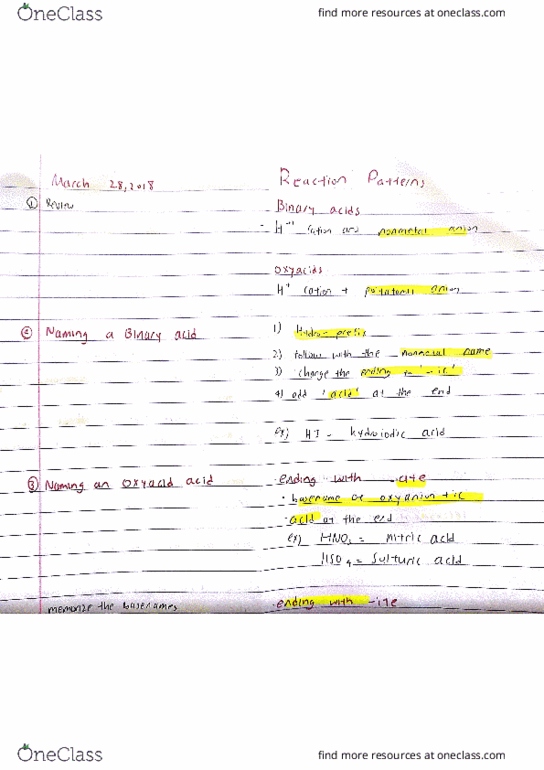 OneClass find more resources at oneclass.com
March 28, 2018 Reaction Patterns
① Review Binary acids
- H⁺ cation and nonmetal anion
oxyacids
H⁺ cation + polyatomic anion
② Naming a Binary acid 1) Hydro- prefix
2) follow with the nonmetal name
3) change the ending to "-ic"
4) add 'acid' at the end
ex) HI - hydroiodic acid
③ Naming an oxyacid acid - ending with -ate
• basename of oxyanion + ic
- acid at the end
ex) HNO₃ = nitric acid
HSO₄ = Sulfuric acid
memorize the basenames - ending with -ite
OneClass find more resources at oneclass.com